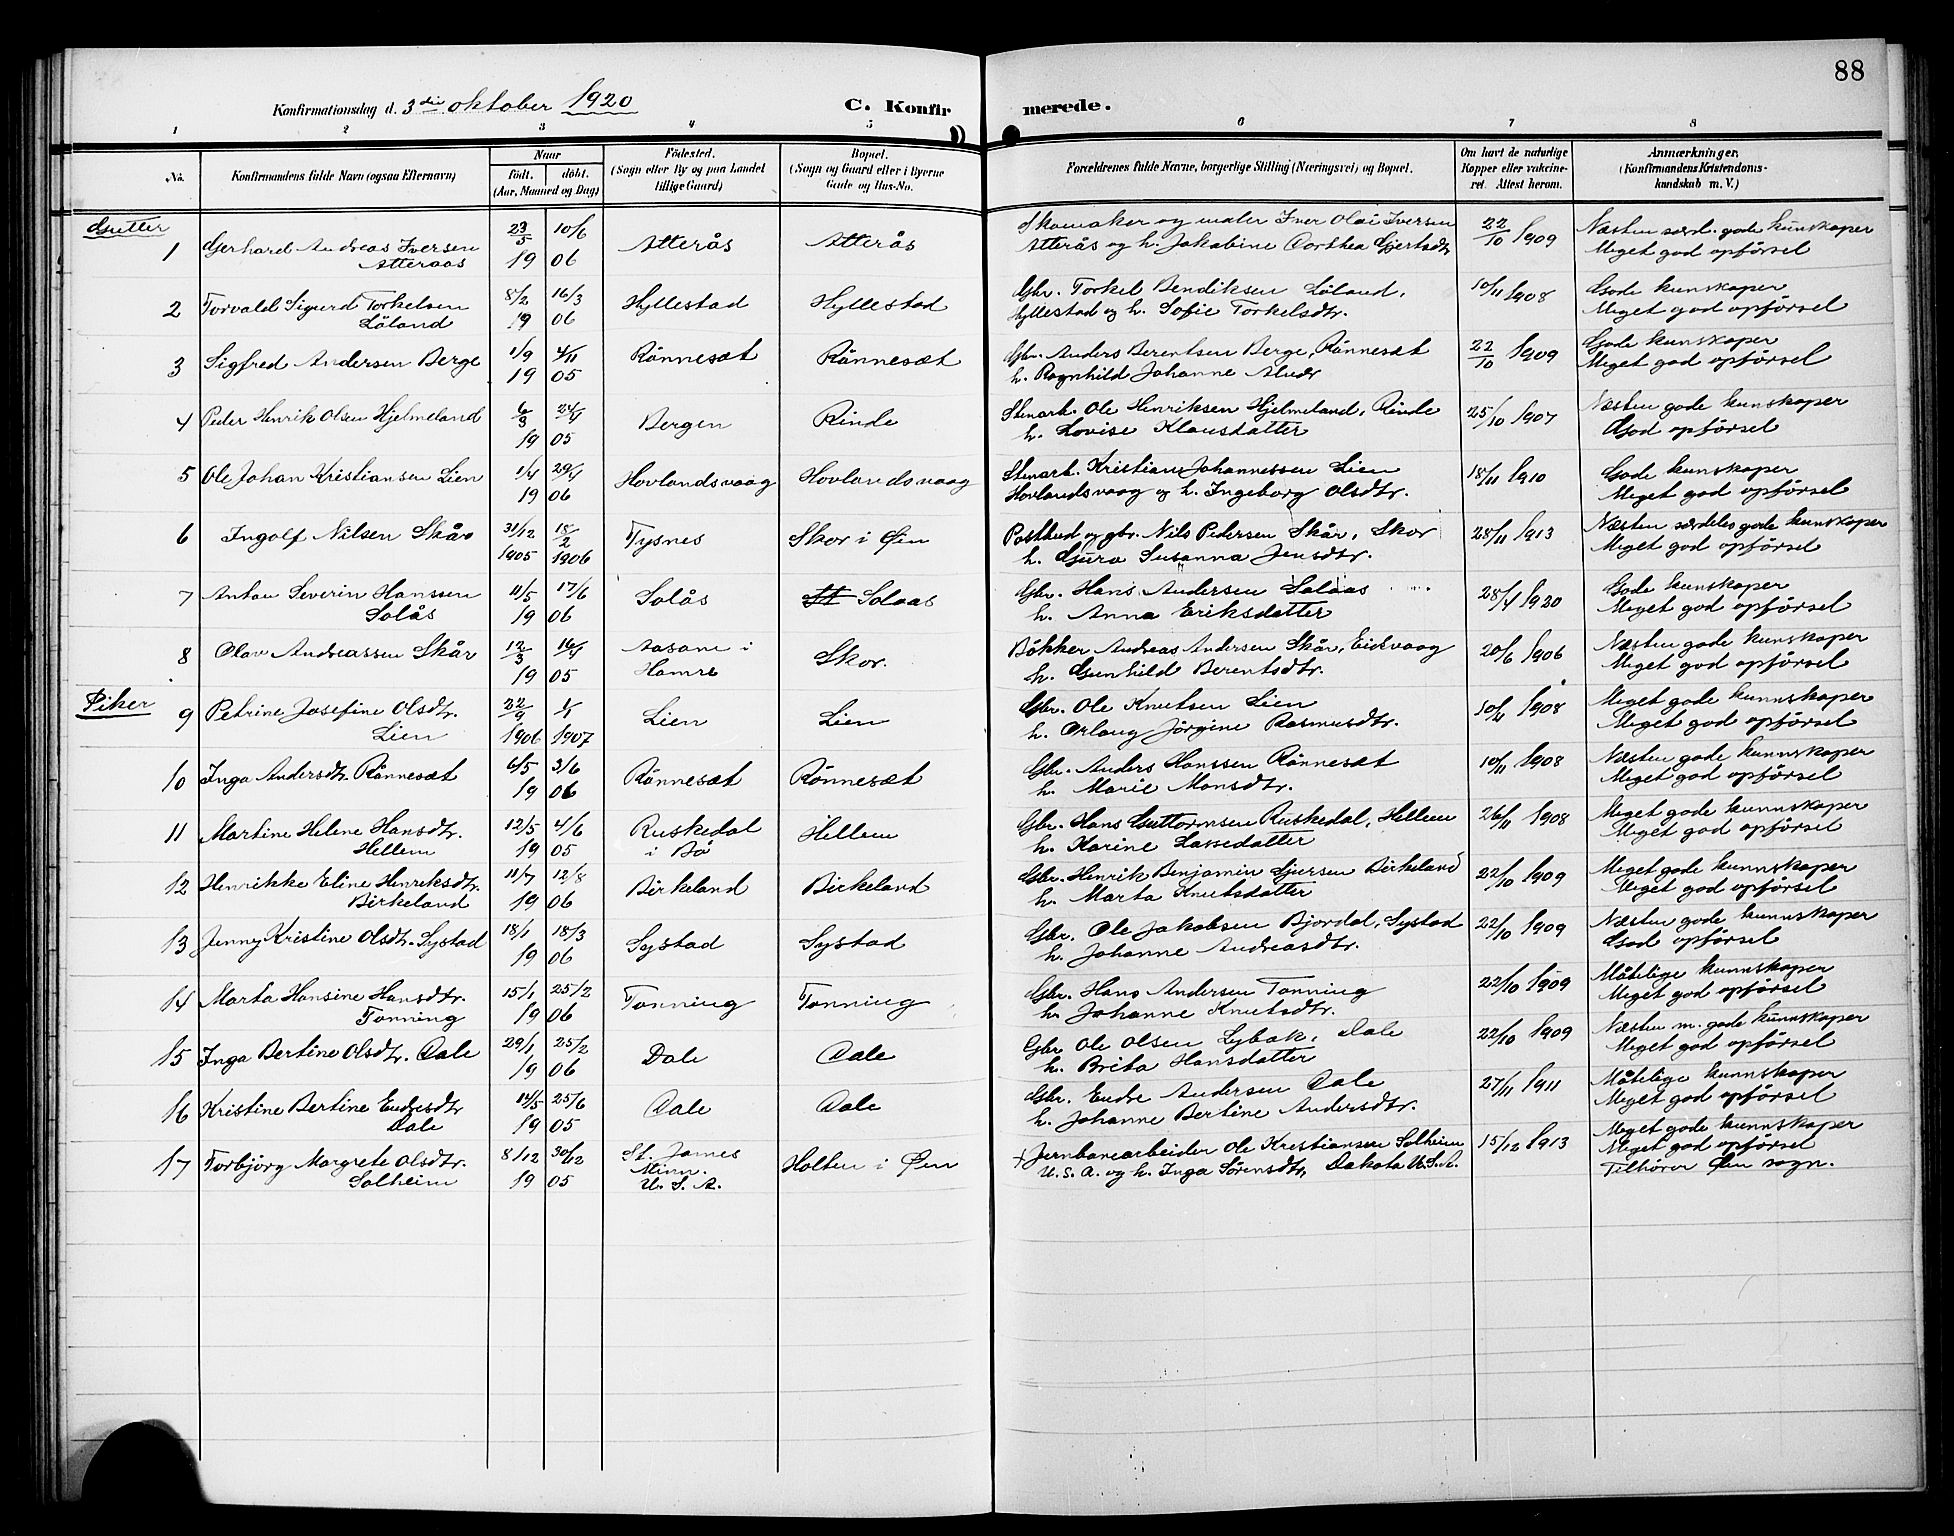 88
Konfirmationsdag d. 3die oktober 1920 C. Konfirmerede.
1 2 3 4 5 6 7 8
No. Konfirmandens fulde Navn (ogsaa Efternavn) Naar født. døbt. (Aar, Maaned og Dag) Fødested. (Sogn eller By og paa Landet tillige Gaard) Bopæl. (Sogn og Gaard eller i Byerne Gade og Hus-No. Forældrenes fulde Navne, borgerlige Stilling (Næringsvei) og Bopæl. Om havt de naturlige Kopper eller vakcineret. Attest herom. Anmærkninger. (Konfirmandens Kristendomskundskab m. V.)
Gutter
1 Gerhard Andreas Iversen 23/5 10/6 Atterås Atterås Skomaker og maler Iver Olai Iversen 22/10 1909 Næsten særd. gode kunskaper
Atteraas 19 06 Atterås og h. Jakobine Dorthea Gjertsdtr Meget god opførsel
2 Torvald Sigurd Torkelsen 8/2 16/3 Hyllestad Hyllestad Gbr. Torkel Bendiksen Løland, 10/11 1908 Gode kunskaper
Løland 19 06 Hyllestad og h. Sofie Torkelsdtr. Meget god opførsel
3 Sigfred Andersen Berge 1/9 4/11 Rønnesæt Rønnesæt Gbr. Anders Berentsen Berge, Rønnesæt 22/10 1909 Gode kunskaper
19 05 h. Ragnhild Johanne Meget god opførsel
4 Peder Henrik Olsen Hjelmeland 6/3 24/4 Bergen Rinde Stenarb. Ole Henriksen Hjelmeland, Rinde 25/10 1907 Næsten gode kunskaper
19 05 h. Lovise Klausdatter God opførsel
5 Ole Johan Kristiansen Lien 1/4 29/4 Hovlandsvaag Hovlandsvaag Stenarb. Kristian Johannessen Lien 18/11 1910 Gode kunskaper
19 06 Hovlandsvaag og h. Ingeborg Olsdtr. Meget god opførsel
6 Ingolf Nilsen Skår 31/12 18/2 Tysnes Skor i Øen Postbud og gbr. Nils Pedersen Skår, Skor 28/11 1913 Næsten særdeles gode kunskaper
1905 1906 h. Gjura Susanna Jensdtr. Meget god opførsel
7 Anton Severin Hanssen 11/5 17/6 Solås Solaas Gbr. Hans Andersen Solaas 28/4 1920 Gode kunskaper
Solås 19 06 h. Anna Eriksdatter Meget god opførsel
8 Olav Andreassen Skår 12/3 16/4 Aasane i Skor. Bøkker Andreas Andersen Skår, Eidsvaag 20/6 1906 Næsten gode kunskaper
19 05 Hamre h. Gunhild Berentsdtr. Meget god opførsel
Piker
9 Petrine Josefine Olsdtr. 22/9 1/1 Lien Lien Gbr. Ole Knutsen Lien 10/11 1908 Meget gode kunnskaper
Lien 1906 1907 h. Orlaug Jørgine Rasmusdtr. Meget god opførsel
10 Inga Andersdtr. Rønnesæt 6/5 3/6 Rønnesæt Rønnesæt Gbr. Anders Hanssen Rønnesæt 10/11 1908 Næsten gode kunnskaper
19 06 h. Marie Monsdtr. Meget god opførsel
11 Martine Helene Hansdtr. 12/5 4/6 Ruskedal Hellem Gbr. Hans Guttormsen Ruskedal, Hellem 26/11 1908 Meget gode kunnskaper
Hellem 19 05 i Bø h. Karine Lassedatter Meget god opførsel
12 Henrikke Eline Henriksdtr. 11/7 12/8 Birkeland Birkeland Gbr. Henrik Benjamin Gjursen Birkeland 22/10 1909 Meget gode kunnskaper
Birkeland 19 06 h. Marta Knutsdatter Meget god opførsel
13 Jenny Kristine Olsdtr. Systad 18/1 18/3 Systad Systad Gbr. Ole Jakobsen Bjordal, Systad 22/10 1909 Næsten gode kunnskaper
19 06 h. Johanne Andreasdtr. God opførsel
14 Marta Hansine Hansdtr. 15/1 25/2 Tonning Tonning Gbr. Hans Andersen Tonning 22/10 1909 Måtelige kunnskaper
Tonning 19 06 h. Johanne Knutsdtr. Meget god opførsel
15 Inga Bertine Olsdtr. Dale 29/1 25/2 Dale Dale Gbr Ole Olsen Lybak, Dale 22/10 1909 Næsten m. gode kunnskaper
19 06 h. Brita Hansdatter Meget god opførsel
16 Kristine Bertine Endresdtr 14/5 25/6 Dale Dale Gbr. Endre Andersen Dale 27/11 1911 Måtelige kunnskaper
Dale 19 05 h. Johanne Bertine Andersdtr. Meget god opførsel
17 Torbjørg Margrete Olsdtr. 8/12 30/12 St. James Holten i Øen + Jernbanearbeider Ole Kristiansen Solheim 15/12 1913 Meget gode kunnskaper
Solheim 19 05 Minn. U.S.A. og h. Inga Sørensdtr, Dakota U.S.A. Meget god opførsel
U. S. A. Tilhører Øen sogn.